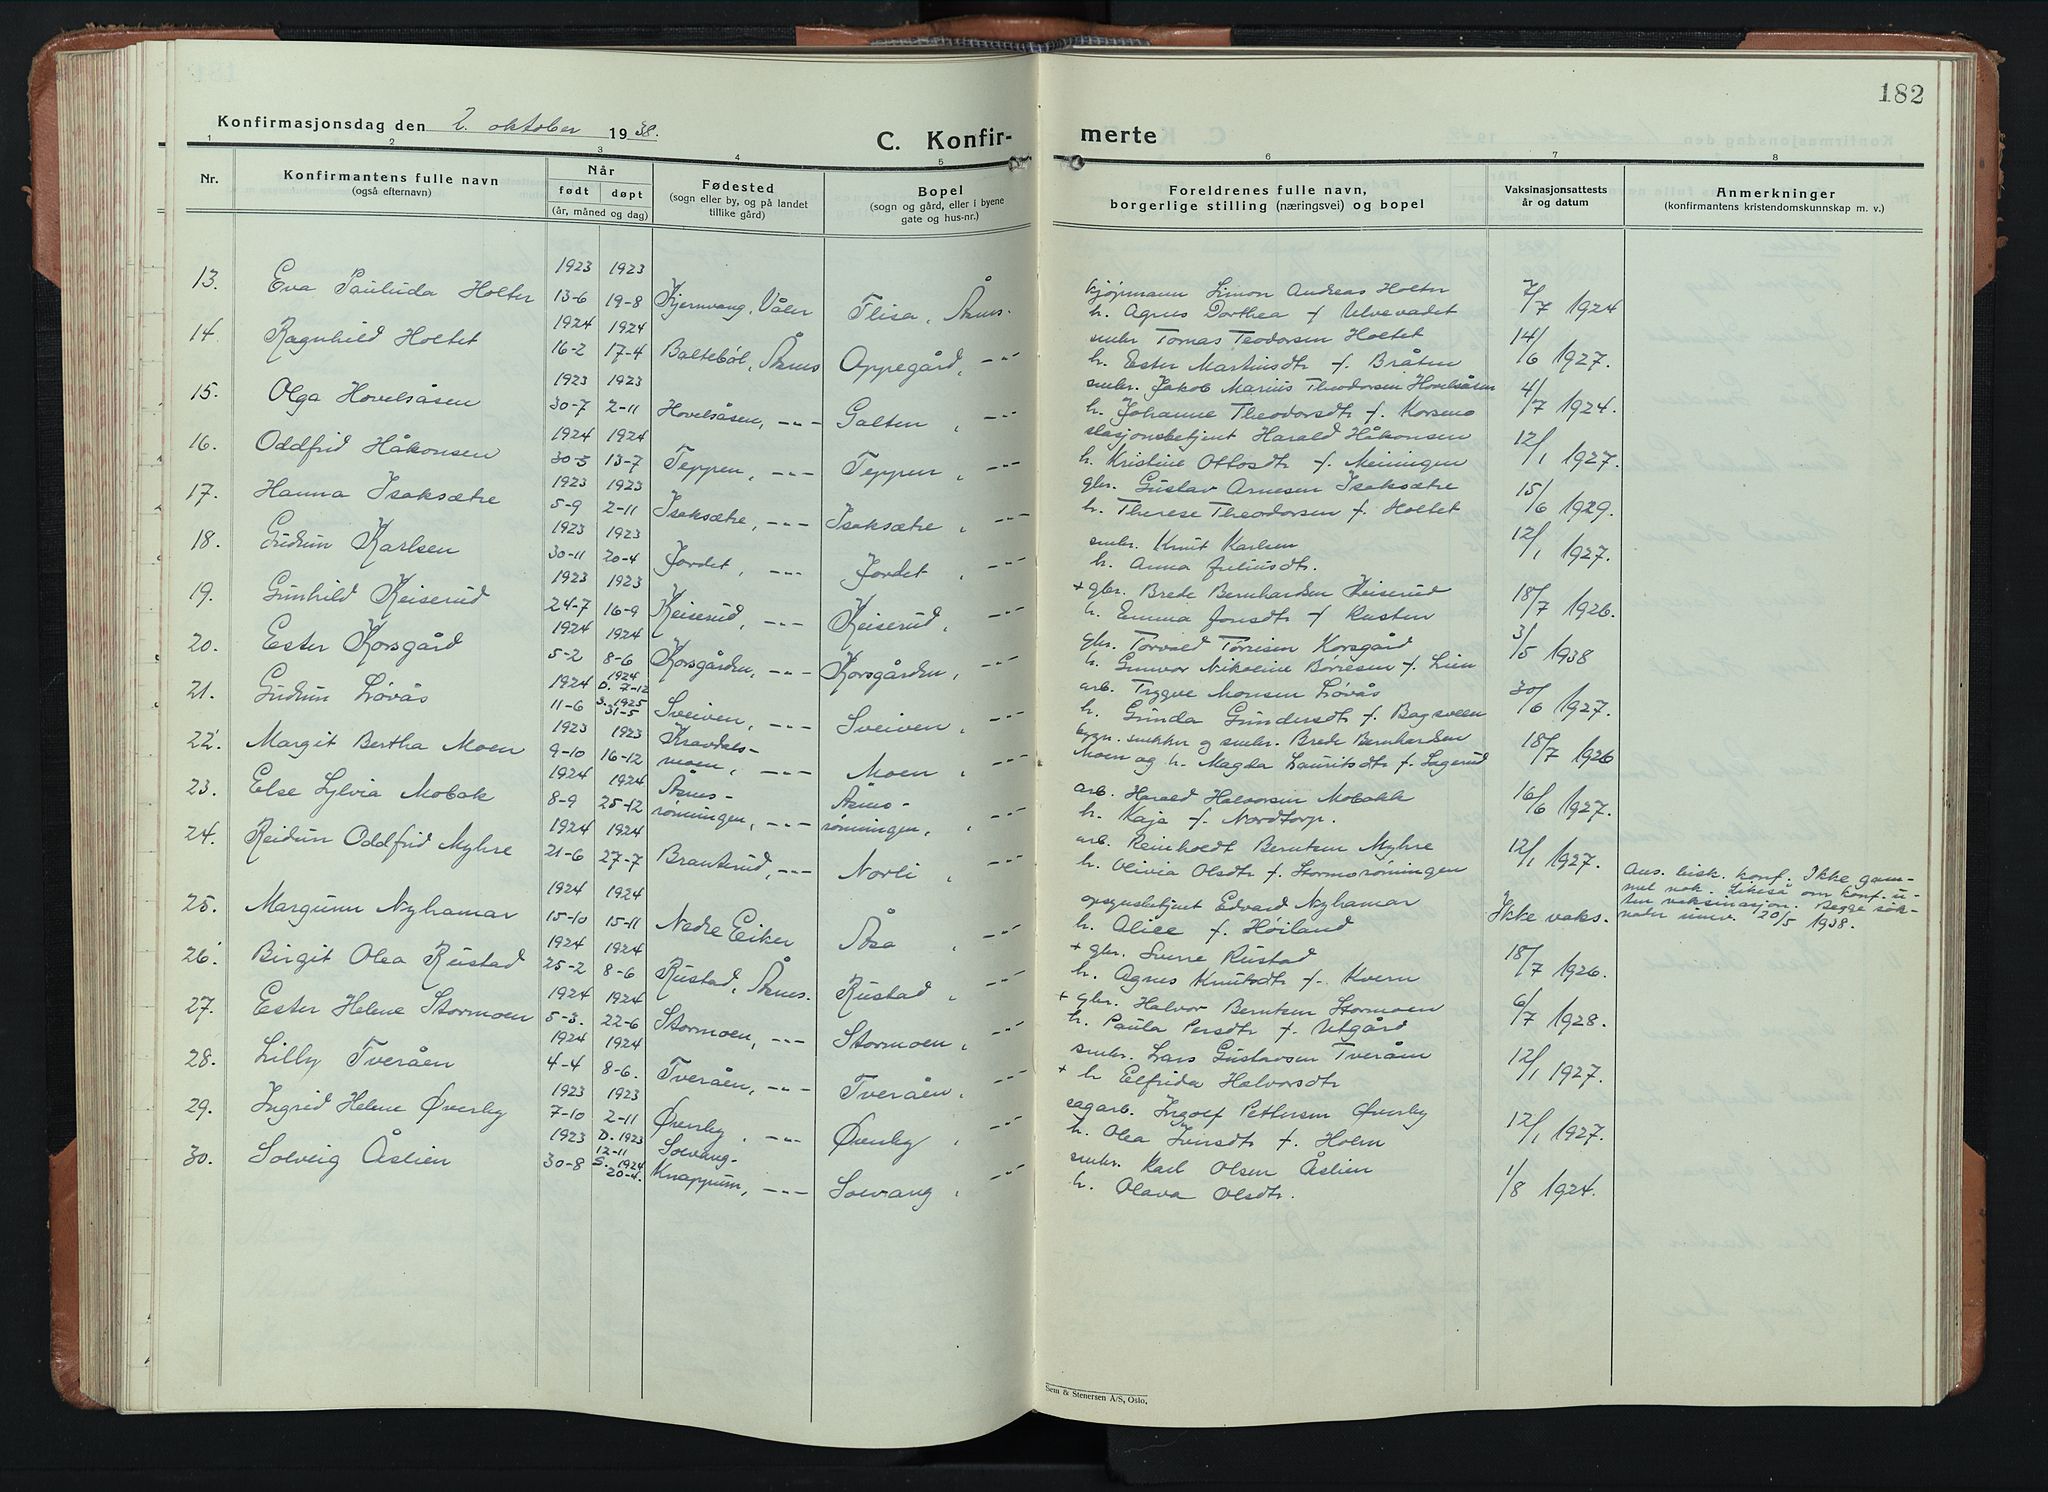 182
Konfirmasjonsdag den 2. oktober 1938.
C. Konfir-
merte
1 2 3 4 5 6 7 8
Nr.
Konfirmantens fulle navn
(også efternavn)
Når
født døpt
(år, måned og dag)
Fødested
(sogn eller by, og på landet
tillike gård)
Bopel
(sogn og gård, eller i byene
gate og hus-nr.)
Foreldrenes fulle navn,
borgerlige stilling (næringsvei) og bopel
Vaksinasjonsattests
år og datum
Anmerkninger
(konfirmantens kristendomskunnskap m. v.)
1923 1923
13. Eva Pauluda Holter 13-6 19-8 Kjernvang, Våler Flisa, Åsnes.
kjøpmann Simon Andreas Holter
h. Agnes Dorthea f Ulvevadet 7/7 1924
1924 1924
14 Ragnhild Holtet 16-2 17-4 Baltebøl, Åsnes Oppegård, -"-
smbr Tomas Teodorsen Holtet
h. Ester Martinsdtr f. Bråten 14/6 1927.
1923 1923
15. Olga Hovelsåsen 30-7 2-11 Hovelsåsen, -"- Galten, -"-
smbr. Jakob Marius Theodorsen Hovelsåsen
h. Johanne Theodorsdtr f. Korsmo 4/7 1924.
1924 1924
16. Oddfrid Håkonsen 30-5 13-7 Teppen, -"- Teppen, -"-
stasjonsbetjent Harald Håkonsen
h. Kristine Ottosdtr f. Meiningen 12/1 1927.
1923 1923
17. Hanna Isaksætre 5-9 2-11 Isaksætre, -"- Isaksætre, -"-
gbr. Gustav Arnesen Isaksætre
h. Therese Theodorsen f. Holtet 15/6 1929.
1923 1923
18. Gudrun Karlsen 30-11 20-4 Jordet, -"- Jordet, -"-
smbr. Knut Karlsen
h. Anna Juliusdtr. 12/1 1927.
1923 1923
19. Gunhild Keiserud 24-7 16-9 Keiserud, -"- Keiserud, -"-
+ gbr. Brede Bernhardsen Keiserud
h. Emma Jonsdtr f Rusten 18/7 1926.
1924 1924
20. Ester Korsgård 5-2 8-6 Korsgården, -"- Korsgården, -"-
gbr. Torvald Tørrisen Korsgård
h. Gunvor Nikoline Børresen f. Lien 3/5 1938
1924 1924
21. Gudrun Løvås 11-6 D. 7-12 S. 1925 31-5 Sveiven, -"- Sveiven, -"-
arb. Trygve Monsen Løvås
h. Gunda Gundersdtr f. Bagsveen 30/6 1927.
1923 1923
22. Margit Bertha Moen 9-10 16-12 Kravdals-
moen, -"- Moen, -"-
bygn. snekker og smbr. Brede Bernhardsen
Moen og h. Magda Lauritsdtr f. Lugerud 18/7 1926
1924 1924
23. Else Sylvia Mobak 8-9 25-12 Åsnes-
rønningen, -"- Åsnes-
rønningen, -"-
arb. Harald Halvorsen Mobakk
h. Kaja f. Nordtorp. 16/6 1927.
1924 1924
24. Reidun Oddfrid Myhre 21-6 27-7 Branterud, -"- Norli, -"-
arb. Reinholdt Berntsen Myhre
h. Olivia Olsdtr f. Stormorønningen 12/1 1927.
1924 1924
25. Margunn Nyhamar 15-10 15-11 Nedre Eiker Åsa, -"-
opsynsbetjent Edvard Nyhamar
h. Alice f. Høiland Ikke vaks.
Ans. bisk. konf. Ikke gam-
mel nok. Likeså om konf. u-
ten vaksinasjon. Begge søk-
nader innv. 20/5 1938.
1924 1924
26. Birgit Olea Rustad 25-2 8-6 Rustad, Åsnes. Rustad, -"-
+ gbr. Sverre Rustad
h. Agnes Knutsdtr f. Kvern 18/7 1926.
1924 1924
27. Ester Helene Stormoen 5-3. 22-6 Stormoen, -"- Stormoen, -"-
+ gbr. Halvor Berntsen Stormoen
h. Paula Persdtr f Utgård 6/7 1928.
1924 1924
28. Lilly Tveråen 4-4 8-6. Tveråen, -"- Tveråen, -"-
smbr. Lars Gustavsen Tveråen
+ h Elfrida Halvorsdtr 12/1 1927.
1923 1923
29. Ingrid Helene Øverby 7-10 2-11 Øverby, -"- Øverby, -"-
sagarb. Ingolf Pettersen Øverby
h. Olea Iversdtr f. Holm 12/1 1927.
1923 D. 1923
30. Solveig Åslien 30-8 12-11 S. 1924 20-4. Solvang-
Knappum, -"- Solvang, -"-
smbr. Karl Olsen Åslien
h. Olava Olsdtr. 1/8 1924.
Sem & Stenersen A/S, Oslo.